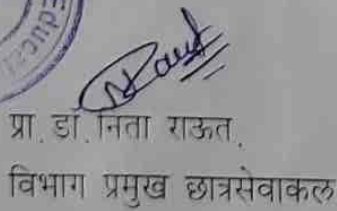 Educa
प्रा. डॉ. निता राऊत.
विभाग प्रमुख छात्रसेवाकल